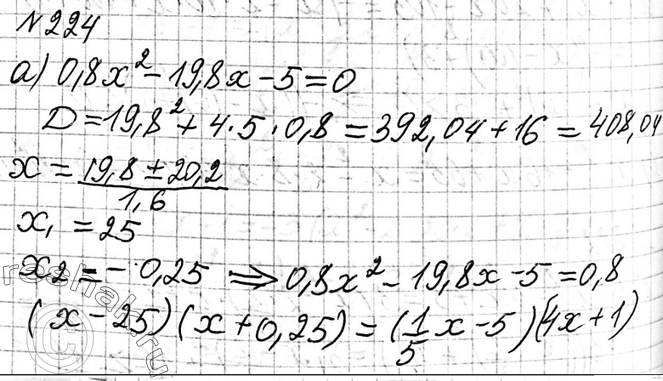 №224
а) 0,8x² - 19,8x - 5 = 0
D = 19,8² + 4·5·0,8 = 392,04 + 16 = 408,04
x = (19,8 ± 20,2)/1,6
x₁ = 25
x₂ = - 0,25 ⇒ 0,8x² - 19,8x - 5 = 0,8
(x - 25)(x + 0,25) = (1/5 x - 5)(4x + 1)
reshak.ru